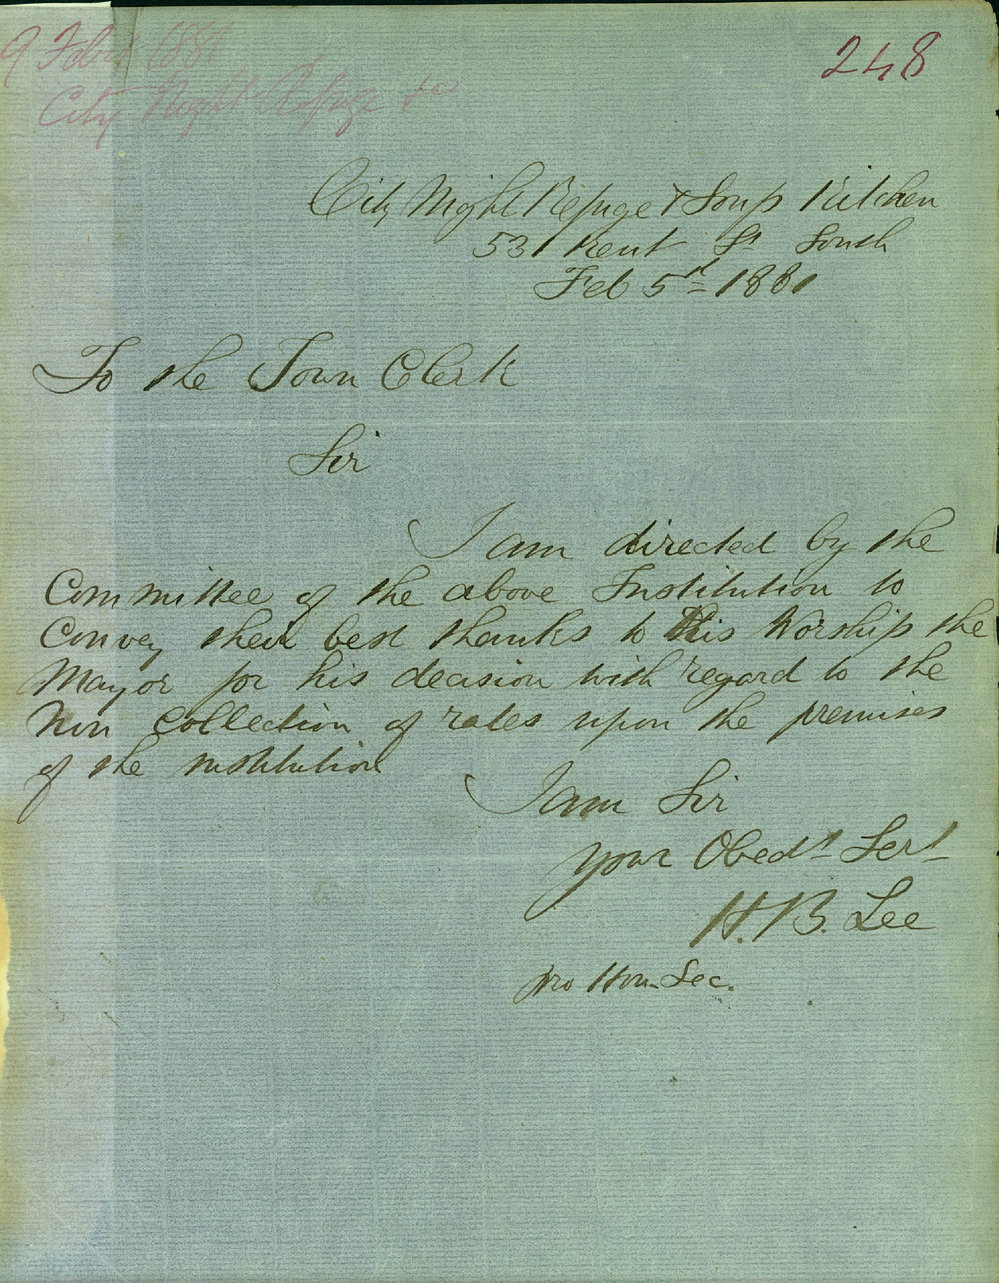 9 Feby 1881
City Night Refuge &c
248
City Night Refuge & Soup Kitchen
531 Kent St South
Feb 5th 1881
To the Town Clerk
Sir
I am directed by the
Committee of the above Institution to
Convey their best thanks to His Worship the
Mayor for his decision with regard to the
Non Collection of rates upon the premises
of the institution
I am Sir
your Obedt Servt
H.B. Lee
pro Hon. Sec.